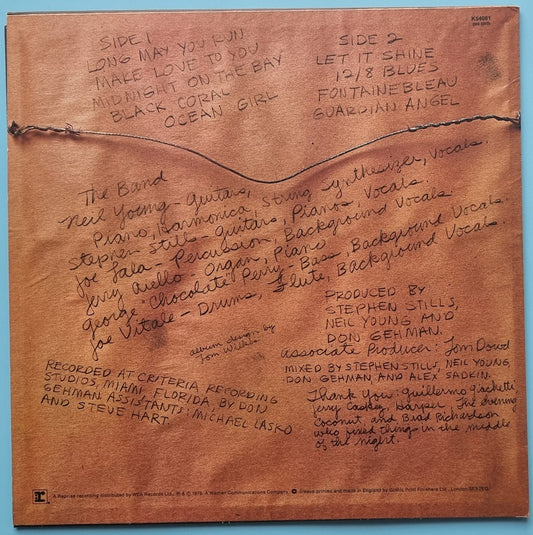 K54081
SIDE 1
LONG MAY YOU RUN
MAKE LOVE TO YOU
MIDNIGHT ON THE BAY
BLACK CORAL
OCEAN GIRL
SIDE 2
LET IT SHINE
12/8 BLUES
FONTAINEBLEAU
GUARDIAN ANGEL
The Band
Neil Young - Guitars,
Piano, Harmonica, String Synthesizer, Vocals.
Stephen Stills - Guitars, Pianos, Vocals.
Joe Lala - Percussion, Background Vocals.
Jerry Aiello - Organ, Piano
George "Chocolate" Perry - Bass, Background Vocals.
Joe Vitale - Drums, Flute, Background Vocals.
album design by
Tom Wilkes
PRODUCED BY
STEPHEN STILLS,
NEIL YOUNG AND
DON GEHMAN.
associate Producer: Tom Dowd
MIXED BY STEPHEN STILLS, NEIL YOUNG,
DON GEHMAN, AND ALEX SADKIN.
RECORDED AT CRITERIA RECORDING
STUDIOS, MIAMI, FLORIDA, BY DON
GEHMAN. ASSISTANTS: MICHAEL LASKO
AND STEVE HART.
Thank You: Guillermo Giachetti
Jerry Caskey, Harper, The evening
Coconut, and Brad Richardson
who fixed things in the middle
of the night.
r
A Reprise recording distributed by WEA Records Ltd., ℗ & © 1976, A Warner Communications Company. Sleeve printed and made in England by Gothic Print Finishers Ltd., London